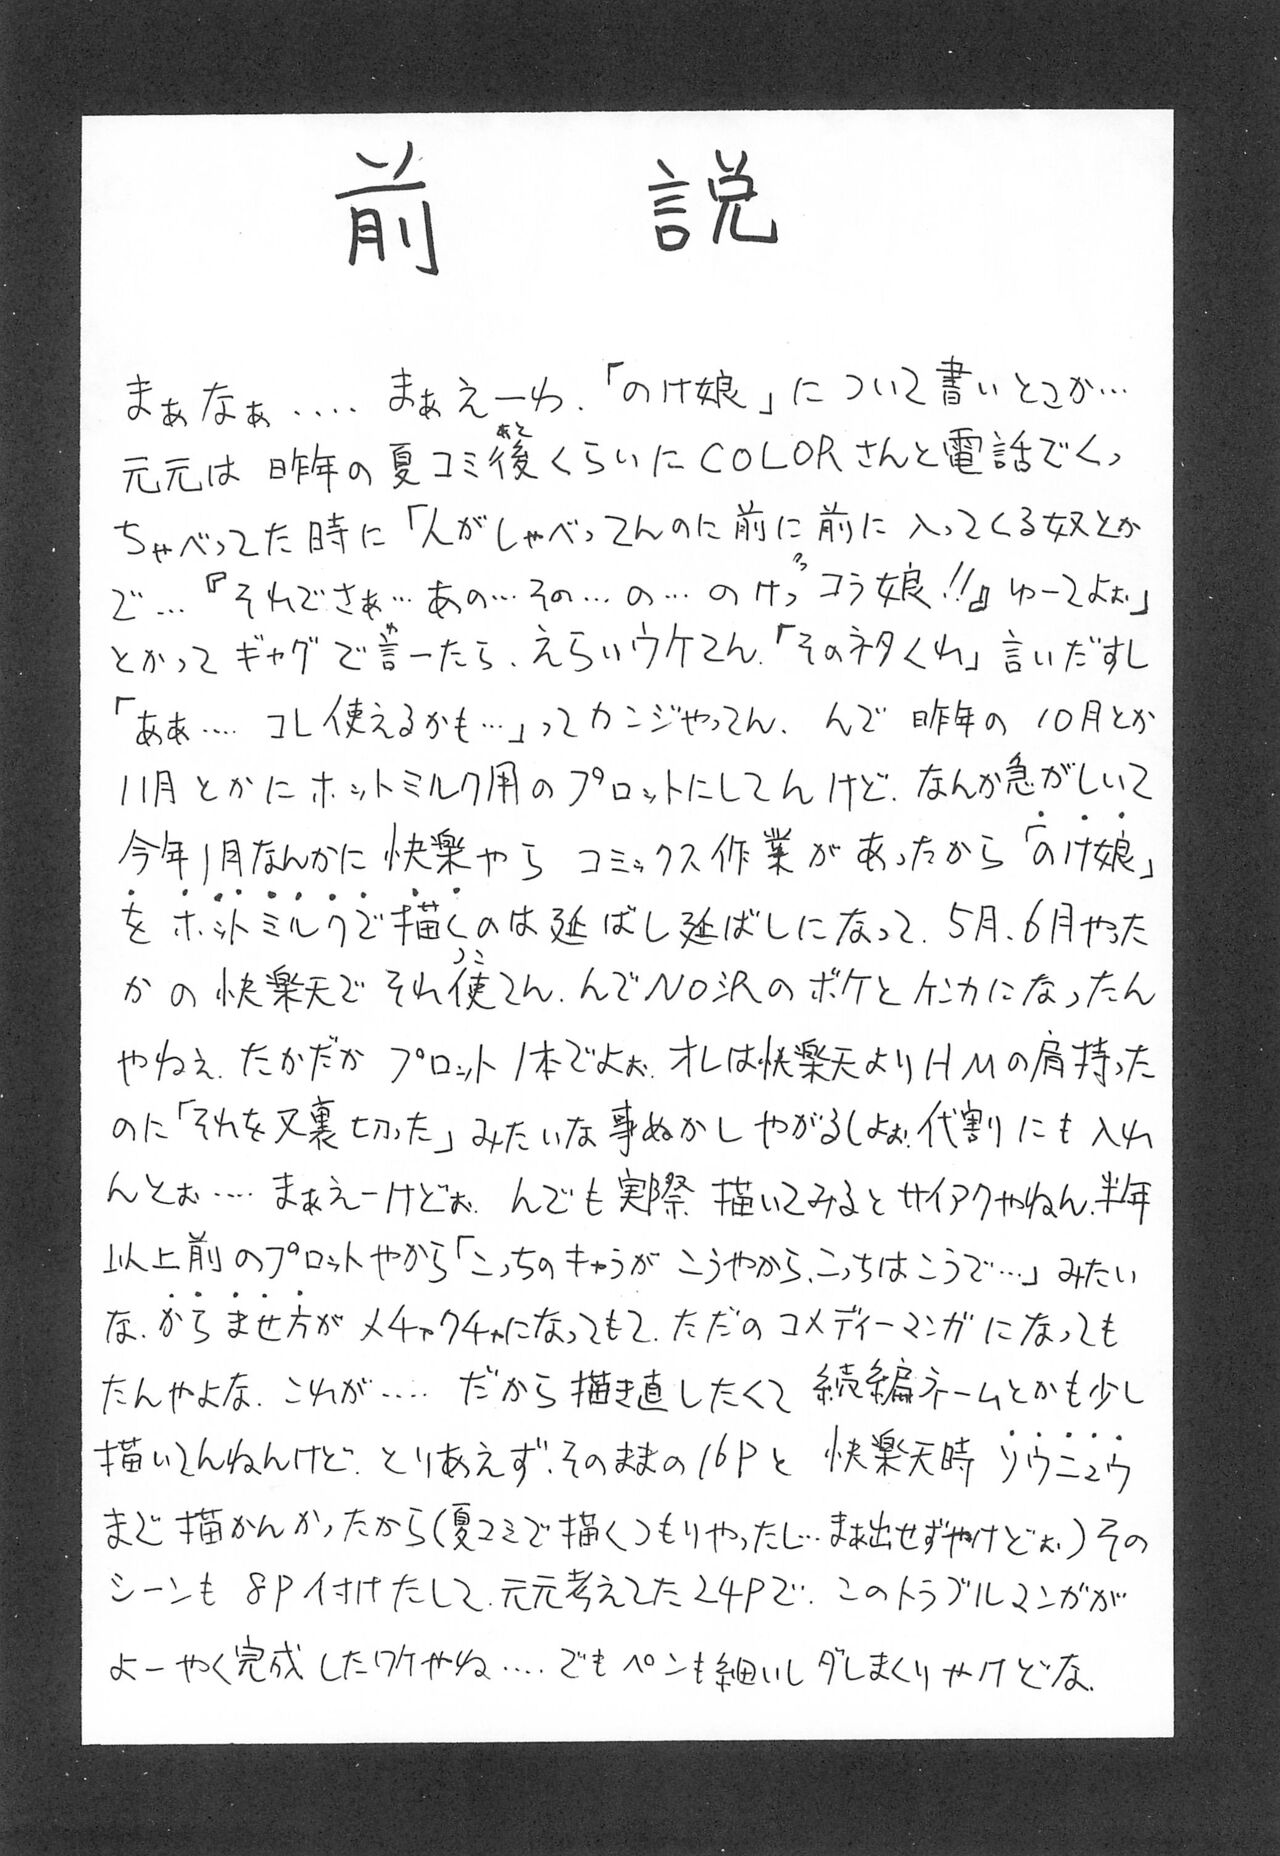 前説
まぁなぁ.... まぁえーわ.「のけ娘」について書いとこか…
元元は昨年の夏コミ後くらいにCOLORさんと電話でくっ
ちゃべってた時に「人がしゃべってんのに前に前に入ってくる奴とか
で…『それでさぁ…あの…その…の…のけっコラ娘!!』ゆーてよぉ」
とかってギャグで言ーたら、えらいウケてん.「そのネタくれ」言いだすし
「ああ.... コレ使えるかも…」ってカンジやってん. んで昨年の10月とか
11月とかにホットミルク用のプロットにしてんけど. なんか急がしいて
今年1月なんかに快楽やらコミックス作業があったから「のけ娘」
をホットミルクで描くのは延ばし延ばしになって. 5月、6月やった
かの快楽天でそれ使てん. んでNO沢のボケとケンカになったん
やねぇ. たかだかプロット1本でよぉ. オレは快楽天よりHMの肩持った
のに「それを又裏切った」みたいな事ぬかしやがるしよぉ. 代割りにも入れ
んとぉ.... まぁえーけどぉ. んでも実際描いてみるとサイアクやねん. 半年
以上前のプロットやから「こっちのキャラがこうやから、こっちはこうで…」みたい
な、からませ方がメチャクチャになってもて. ただのコメディーマンガになっても
たんやよな. これが.... だから描き直したくて続編ネームとかも少し
描いてんねんけど. とりあえず、そのままの16Pと快楽天時ソウニュウ
まで描かんかったから(夏コミで描くつもりやったし…まぁ出せずやけどぉ.)その
シーンも8P付けたして. 元元考えてた24Pで. このトラブルマンガが
よーやく完成したワケやね.... でもペンも細いしダしまくりやけどな.